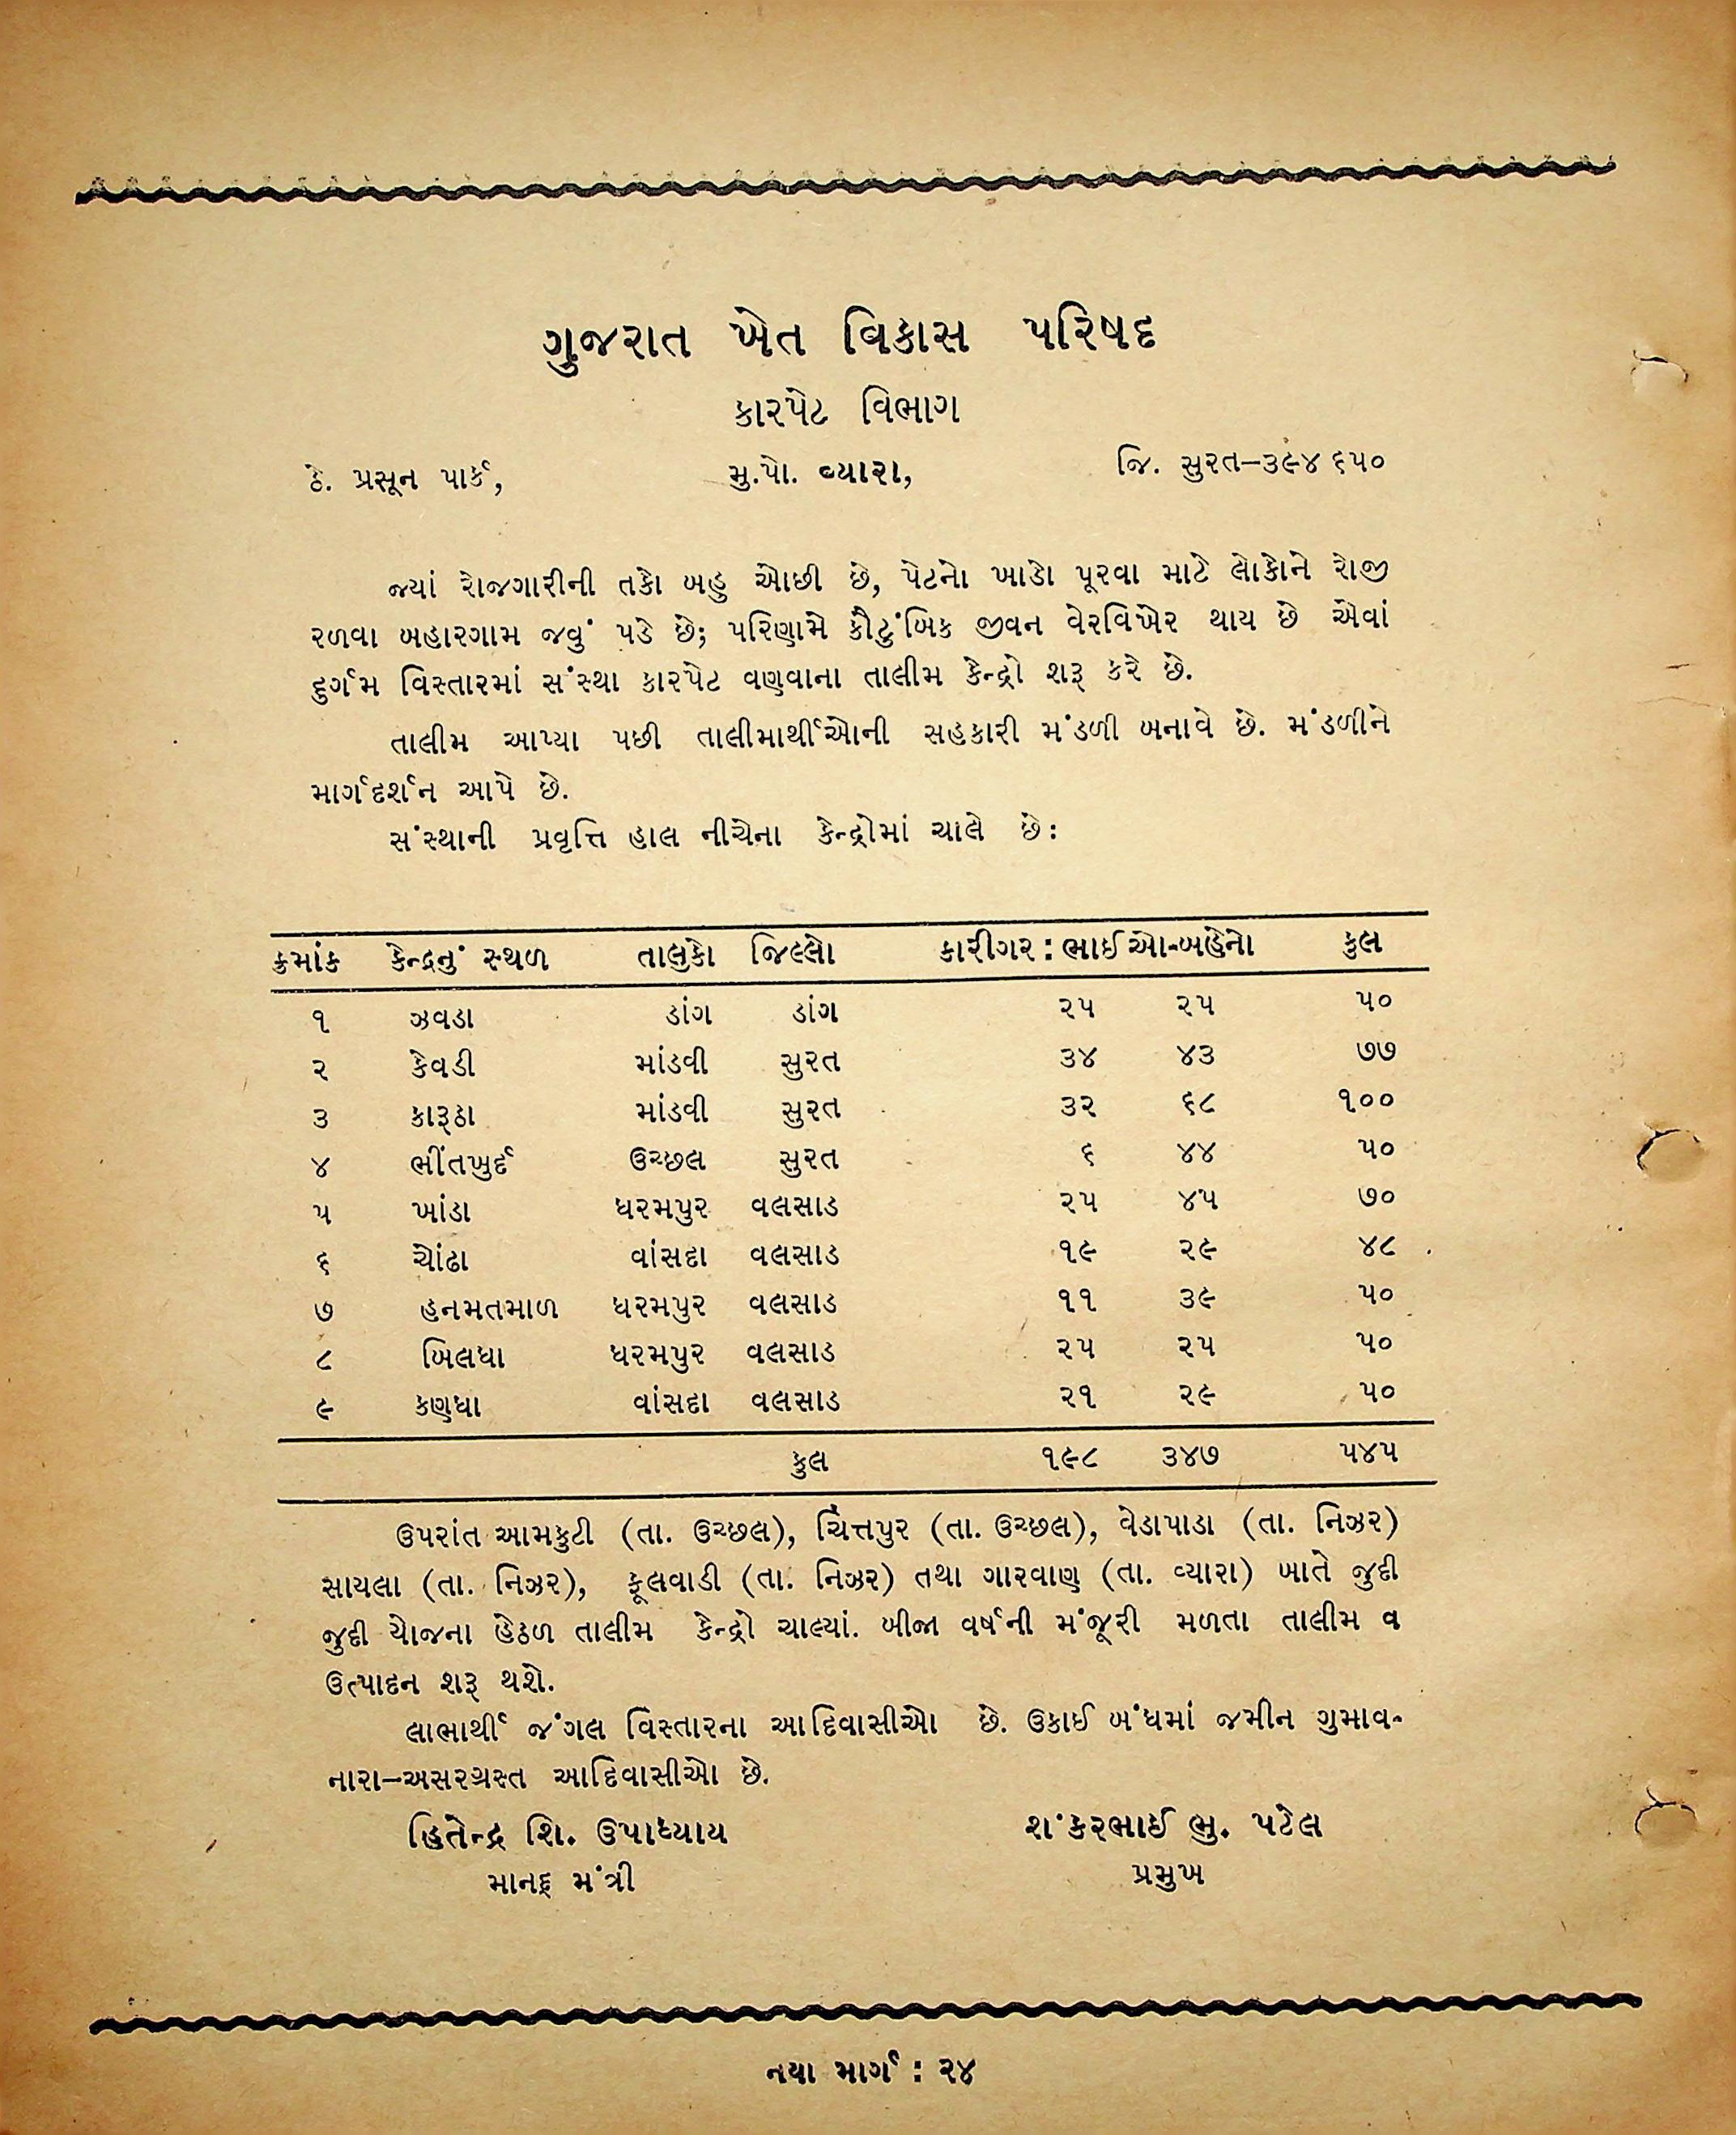 ગુજરાત ખેત વિકાસ પરિષદ
કારપેટ વિભાગ
ઠે. પ્રસૂન પાર્ક, મુ.પો. વ્યારા, જિ. સુરત–૩૯૪ ૬૫૦
જ્યાં રોજગારીની તકો બહુ ઓછી છે, પેટનો ખાડો પૂરવા માટે લોકોને રોજી
રળવા બહારગામ જવું પડે છે; પરિણામે કૌટુંબિક જીવન વેરવિખેર થાય છે એવાં
દુર્ગમ વિસ્તારમાં સંસ્થા કારપેટ વણવાના તાલીમ કેન્દ્રો શરૂ કરે છે.
તાલીમ આપ્યા પછી તાલીમાર્થીઓની સહકારી મંડળી બનાવે છે. મંડળીને
માર્ગદર્શન આપે છે.
સંસ્થાની પ્રવૃત્તિ હાલ નીચેના કેન્દ્રોમાં ચાલે છે:
ક્રમાંક કેન્દ્રનું સ્થળ તાલુકો જિલ્લો કારીગર : ભાઈઓ-બહેનો કુલ
૧ ઝવડા ડાંગ ડાંગ ૨૫ ૨૫ ૫૦
૨ કેવડી માંડવી સુરત ૩૪ ૪૩ ૭૭
૩ કારૂઠા માંડવી સુરત ૩૨ ૬૮ ૧૦૦
૪ ભીંતખુર્દ ઉચ્છલ સુરત ૬ ૪૪ ૫૦
૫ ખાંડા ધરમપુર વલસાડ ૨૫ ૪૫ ૭૦
૬ ચોંઢા વાંસદા વલસાડ ૧૯ ૨૯ ૪૮
૭ હનમતમાળ ધરમપુર વલસાડ ૧૧ ૩૯ ૫૦
૮ બિલધા ધરમપુર વલસાડ ૨૫ ૨૫ ૫૦
૯ કણધા વાંસદા વલસાડ ૨૧ ૨૯ ૫૦
કુલ ૧૯૮ ૩૪૭ ૫૪૫
ઉપરાંત આમકુટી (તા. ઉચ્છલ), ચિત્તપુર (તા. ઉચ્છલ), વેડાપાડા (તા. નિઝર)
સાયલા (તા. નિઝર), ફૂલવાડી (તા. નિઝર) તથા ગારવાણ (તા. વ્યારા) ખાતે જુદી
જુદી યોજના હેઠળ તાલીમ કેન્દ્રો ચાલ્યાં. બીજા વર્ષની મંજૂરી મળતા તાલીમ વ
ઉત્પાદન શરૂ થશે.
લાભાર્થી જંગલ વિસ્તારના આદિવાસીઓ છે. ઉકાઈ બંધમાં જમીન ગુમાવ-
નારા–અસરગ્રસ્ત આદિવાસીઓ છે.
હિતેન્દ્ર શિ. ઉપાધ્યાય શંકરભાઈ ભુ. પટેલ
માનદ્ મંત્રી પ્રમુખ
નયા માર્ગ : ૨૪